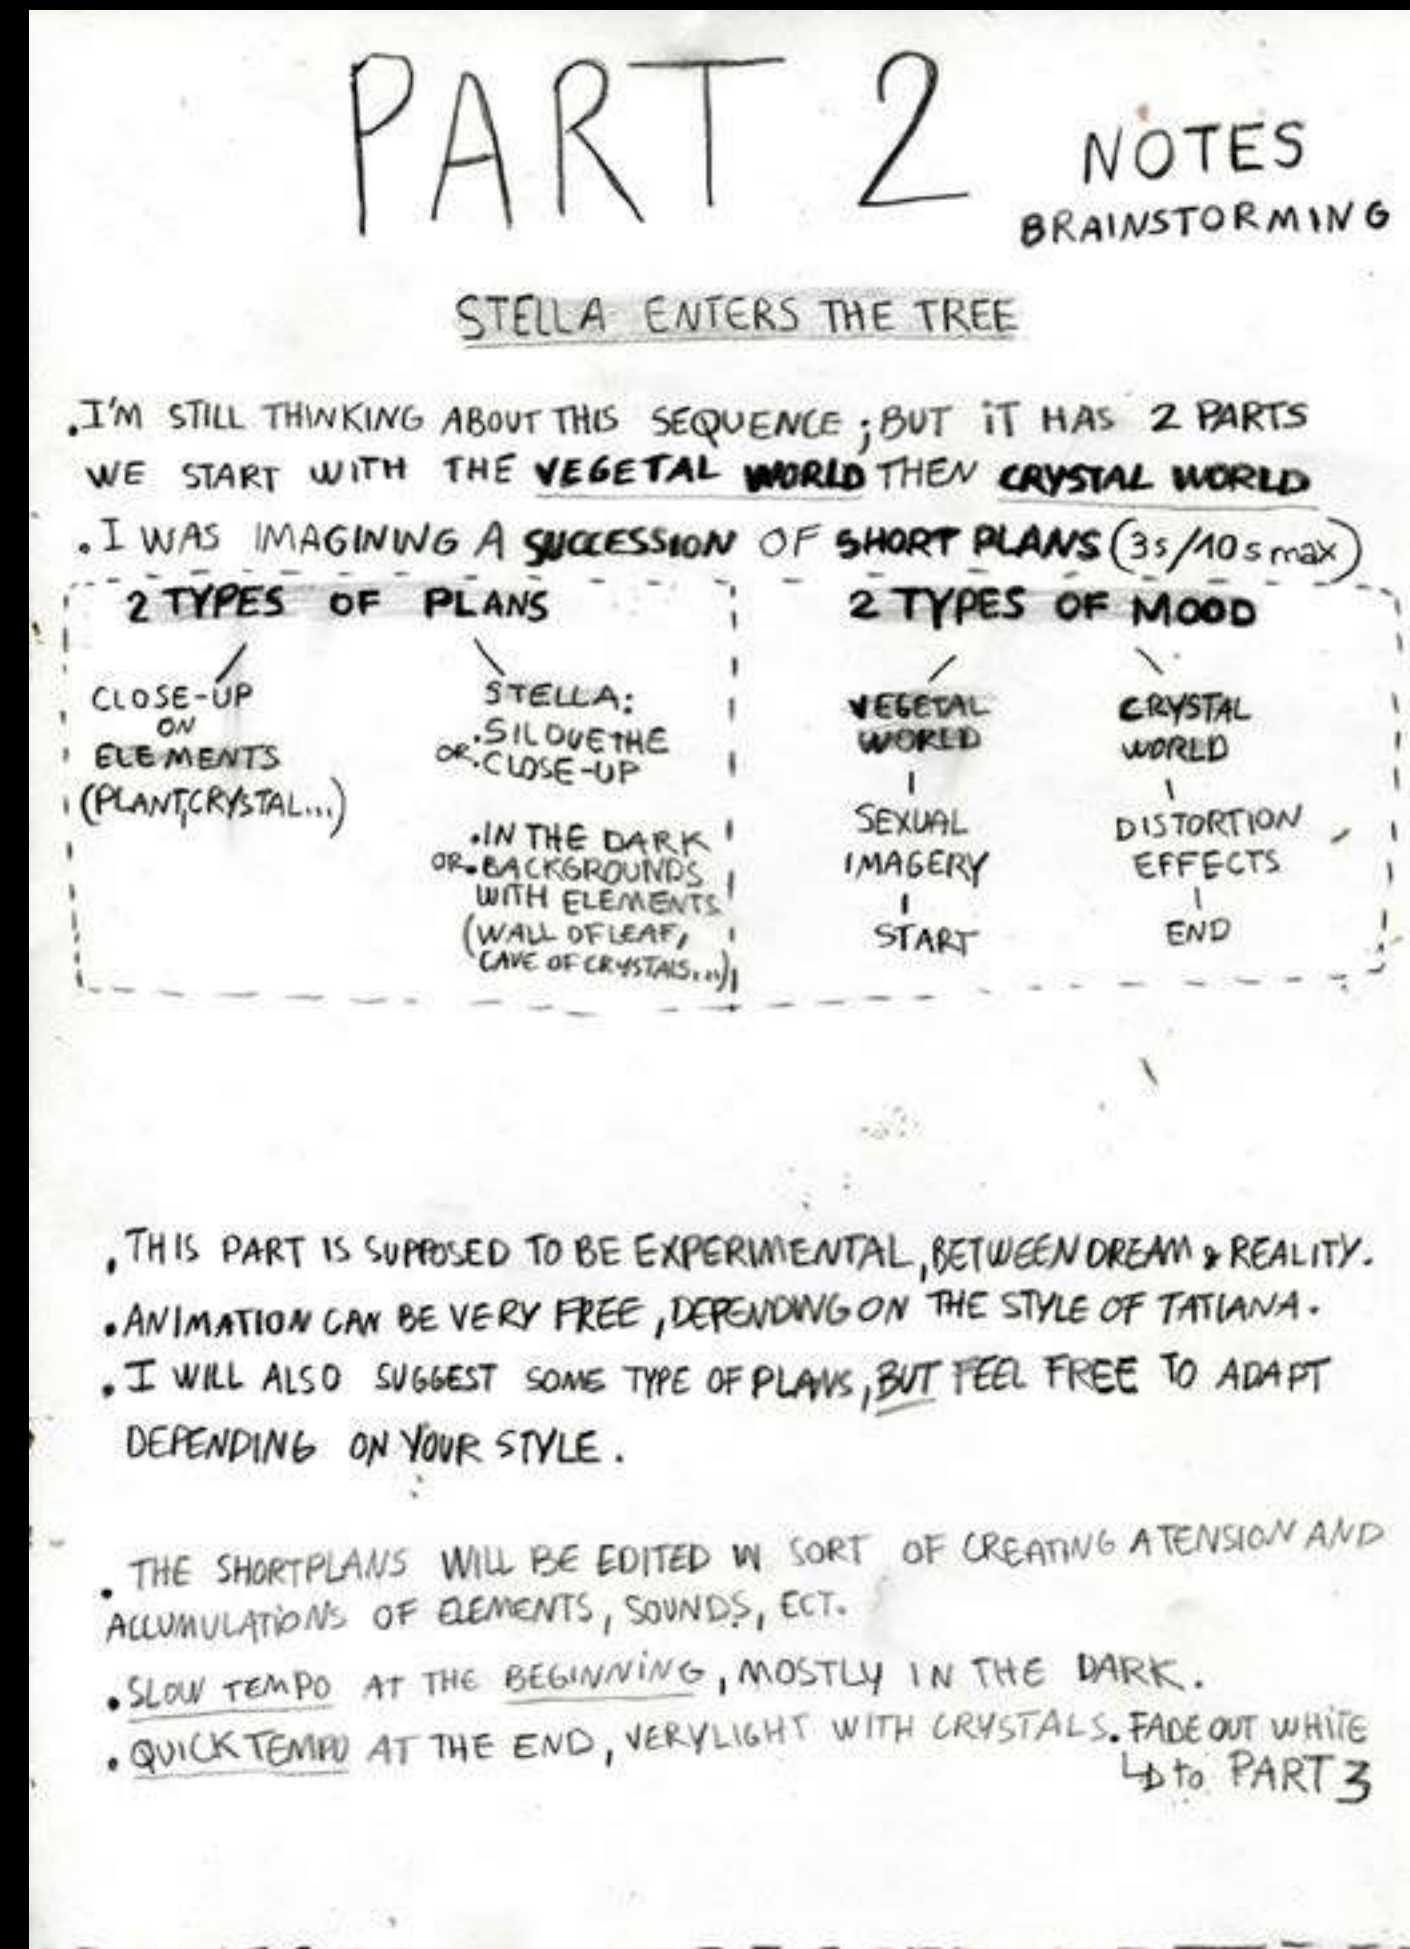 PART 2
NOTES
BRAINSTORMING
STELLA ENTERS THE TREE
.I'M STILL THINKING ABOUT THIS SEQUENCE; BUT iT HAS 2 PARTS
WE START WITH THE VEGETAL WORLD THEN CRYSTAL WORLD
.I WAS IMAGINING A SUCCESSION OF SHORT PLANS (3s/10s max)
2 TYPES OF PLANS
CLOSE-UP
ON
ELEMENTS
(PLANT,CRYSTAL...)
STELLA:
.SILOUETHE
OR.CLOSE-UP
.IN THE DARK
OR.BACKGROUNDS
WITH ELEMENTS
(WALL OF LEAF,
CAVE OF CRYSTALS...)
2 TYPES OF MOOD
VEGETAL
WORLD
SEXUAL
IMAGERY
START
CRYSTAL
WORLD
DISTORTION
EFFECTS
END
.THIS PART IS SUPPOSED TO BE EXPERIMENTAL, BETWEEN DREAM & REALITY.
.ANIMATION CAN BE VERY FREE, DEPENDING ON THE STYLE OF TATIANA.
.I WILL ALSO SUGGEST SOME TYPE OF PLANS, BUT FEEL FREE TO ADAPT
DEPENDING ON YOUR STYLE.
.THE SHORTPLANS WILL BE EDITED IN SORT OF CREATING A TENSION AND
ACCUMULATIONS OF ELEMENTS, SOUNDS, ECT.
.SLOW TEMPO AT THE BEGINNING, MOSTLY IN THE DARK.
.QUICK TEMPO AT THE END, VERY LIGHT WITH CRYSTALS. FADE OUT WHITE
↳to PART 3